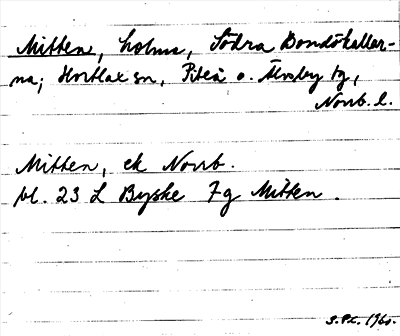 Mitten, holme, Södra Bondökallar-
na; Hortlax sn, Piteå o. Älvsby tg,
Norrb. l.
Mitten, ek Norrb.
bl. 23 L Byske 7g Mitten.
1960.